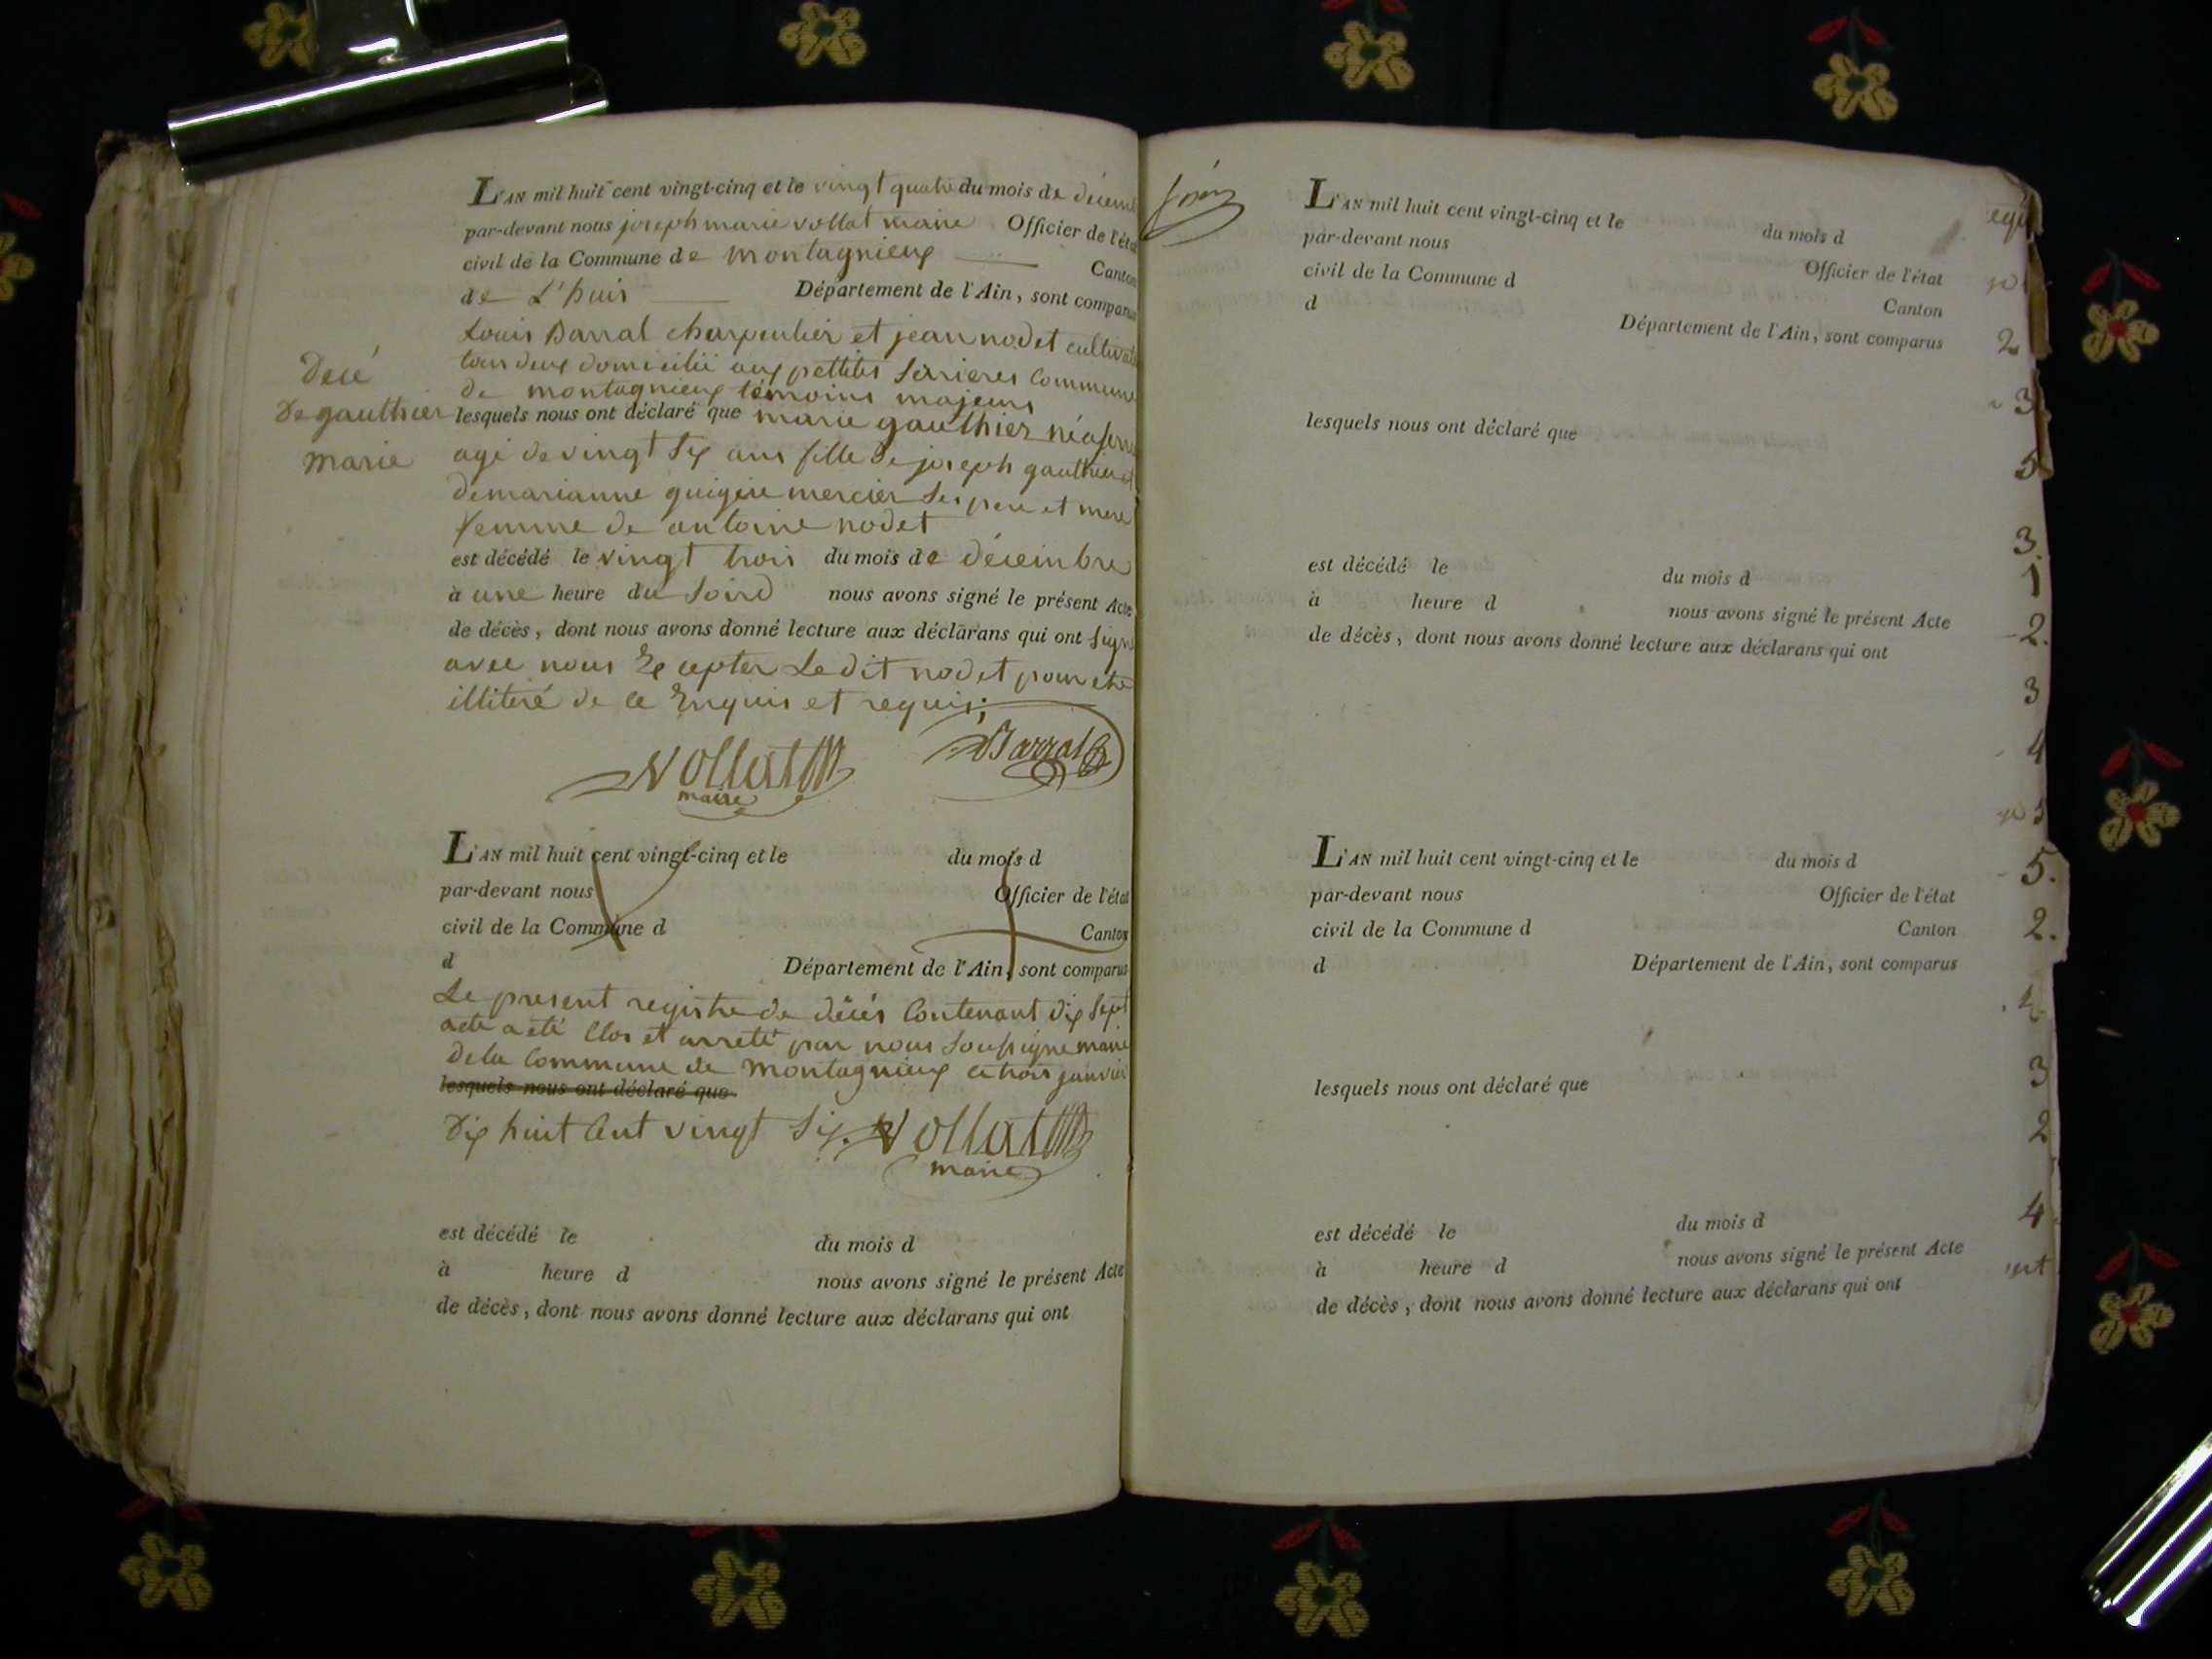 L'AN mil huit cent vingt-cinq et le vingt quatre du mois de décemb
par-devant nous joseph marie vollat maire Officier de l'état
civil de la Commune de montagnieux Canton
de L'huis Département de l'Ain, sont comparus
Louis Barral charpentier et jean nodet cultivate
tous deux domicilii aux pettites Serieres Commune
de montagnieux témoins majeurs
Décé
De gauthier
marie
lesquels nous ont déclaré que marie gauthier née a
agé de vingt six ans fille de joseph gauthier et
de marianne guigere mercier ses pere et mere
femme de antoine nodet
est décédé le vingt trois du mois de décembre
à une heure du Soird nous avons signé le présent Acte
de décès, dont nous avons donné lecture aux déclarans qui ont Signé
avec nous Excepter Le dit nodet pour etre
illiteré de ce Enquis et requis;
Vollat
maire
Barral
L'AN mil huit cent vingt-cinq et le du mois d
par-devant nous Officier de l'état
civil de la Commune d Canton
d Département de l'Ain, sont comparus
Le present registre de décés Contenant dix Sept
acte a eté Clos et arreté par nous Soussigne maire
de la Commune de Montagnieux ce trois janvier
lesquels nous ont déclaré que
Dix huit Cent vingt Six. Vollat
maire
est décédé le du mois d
à heure d nous avons signé le présent Acte
de décès, dont nous avons donné lecture aux déclarans qui ont
L'AN mil huit cent vingt-cinq et le du mois d
par-devant nous Officier de l'état
civil de la Commune d Canton
d Département de l'Ain, sont comparus
lesquels nous ont déclaré que
est décédé le du mois d
à heure d nous avons signé le présent Acte
de décès, dont nous avons donné lecture aux déclarans qui ont
L'AN mil huit cent vingt-cinq et le du mois d
par-devant nous Officier de l'état
civil de la Commune d Canton
d Département de l'Ain, sont comparus
lesquels nous ont déclaré que
est décédé le du mois d
à heure d nous avons signé le présent Acte
de décès, dont nous avons donné lecture aux déclarans qui ont
2
3
5
3.
1
2.
3
4
5
5.
2.
3
2
4